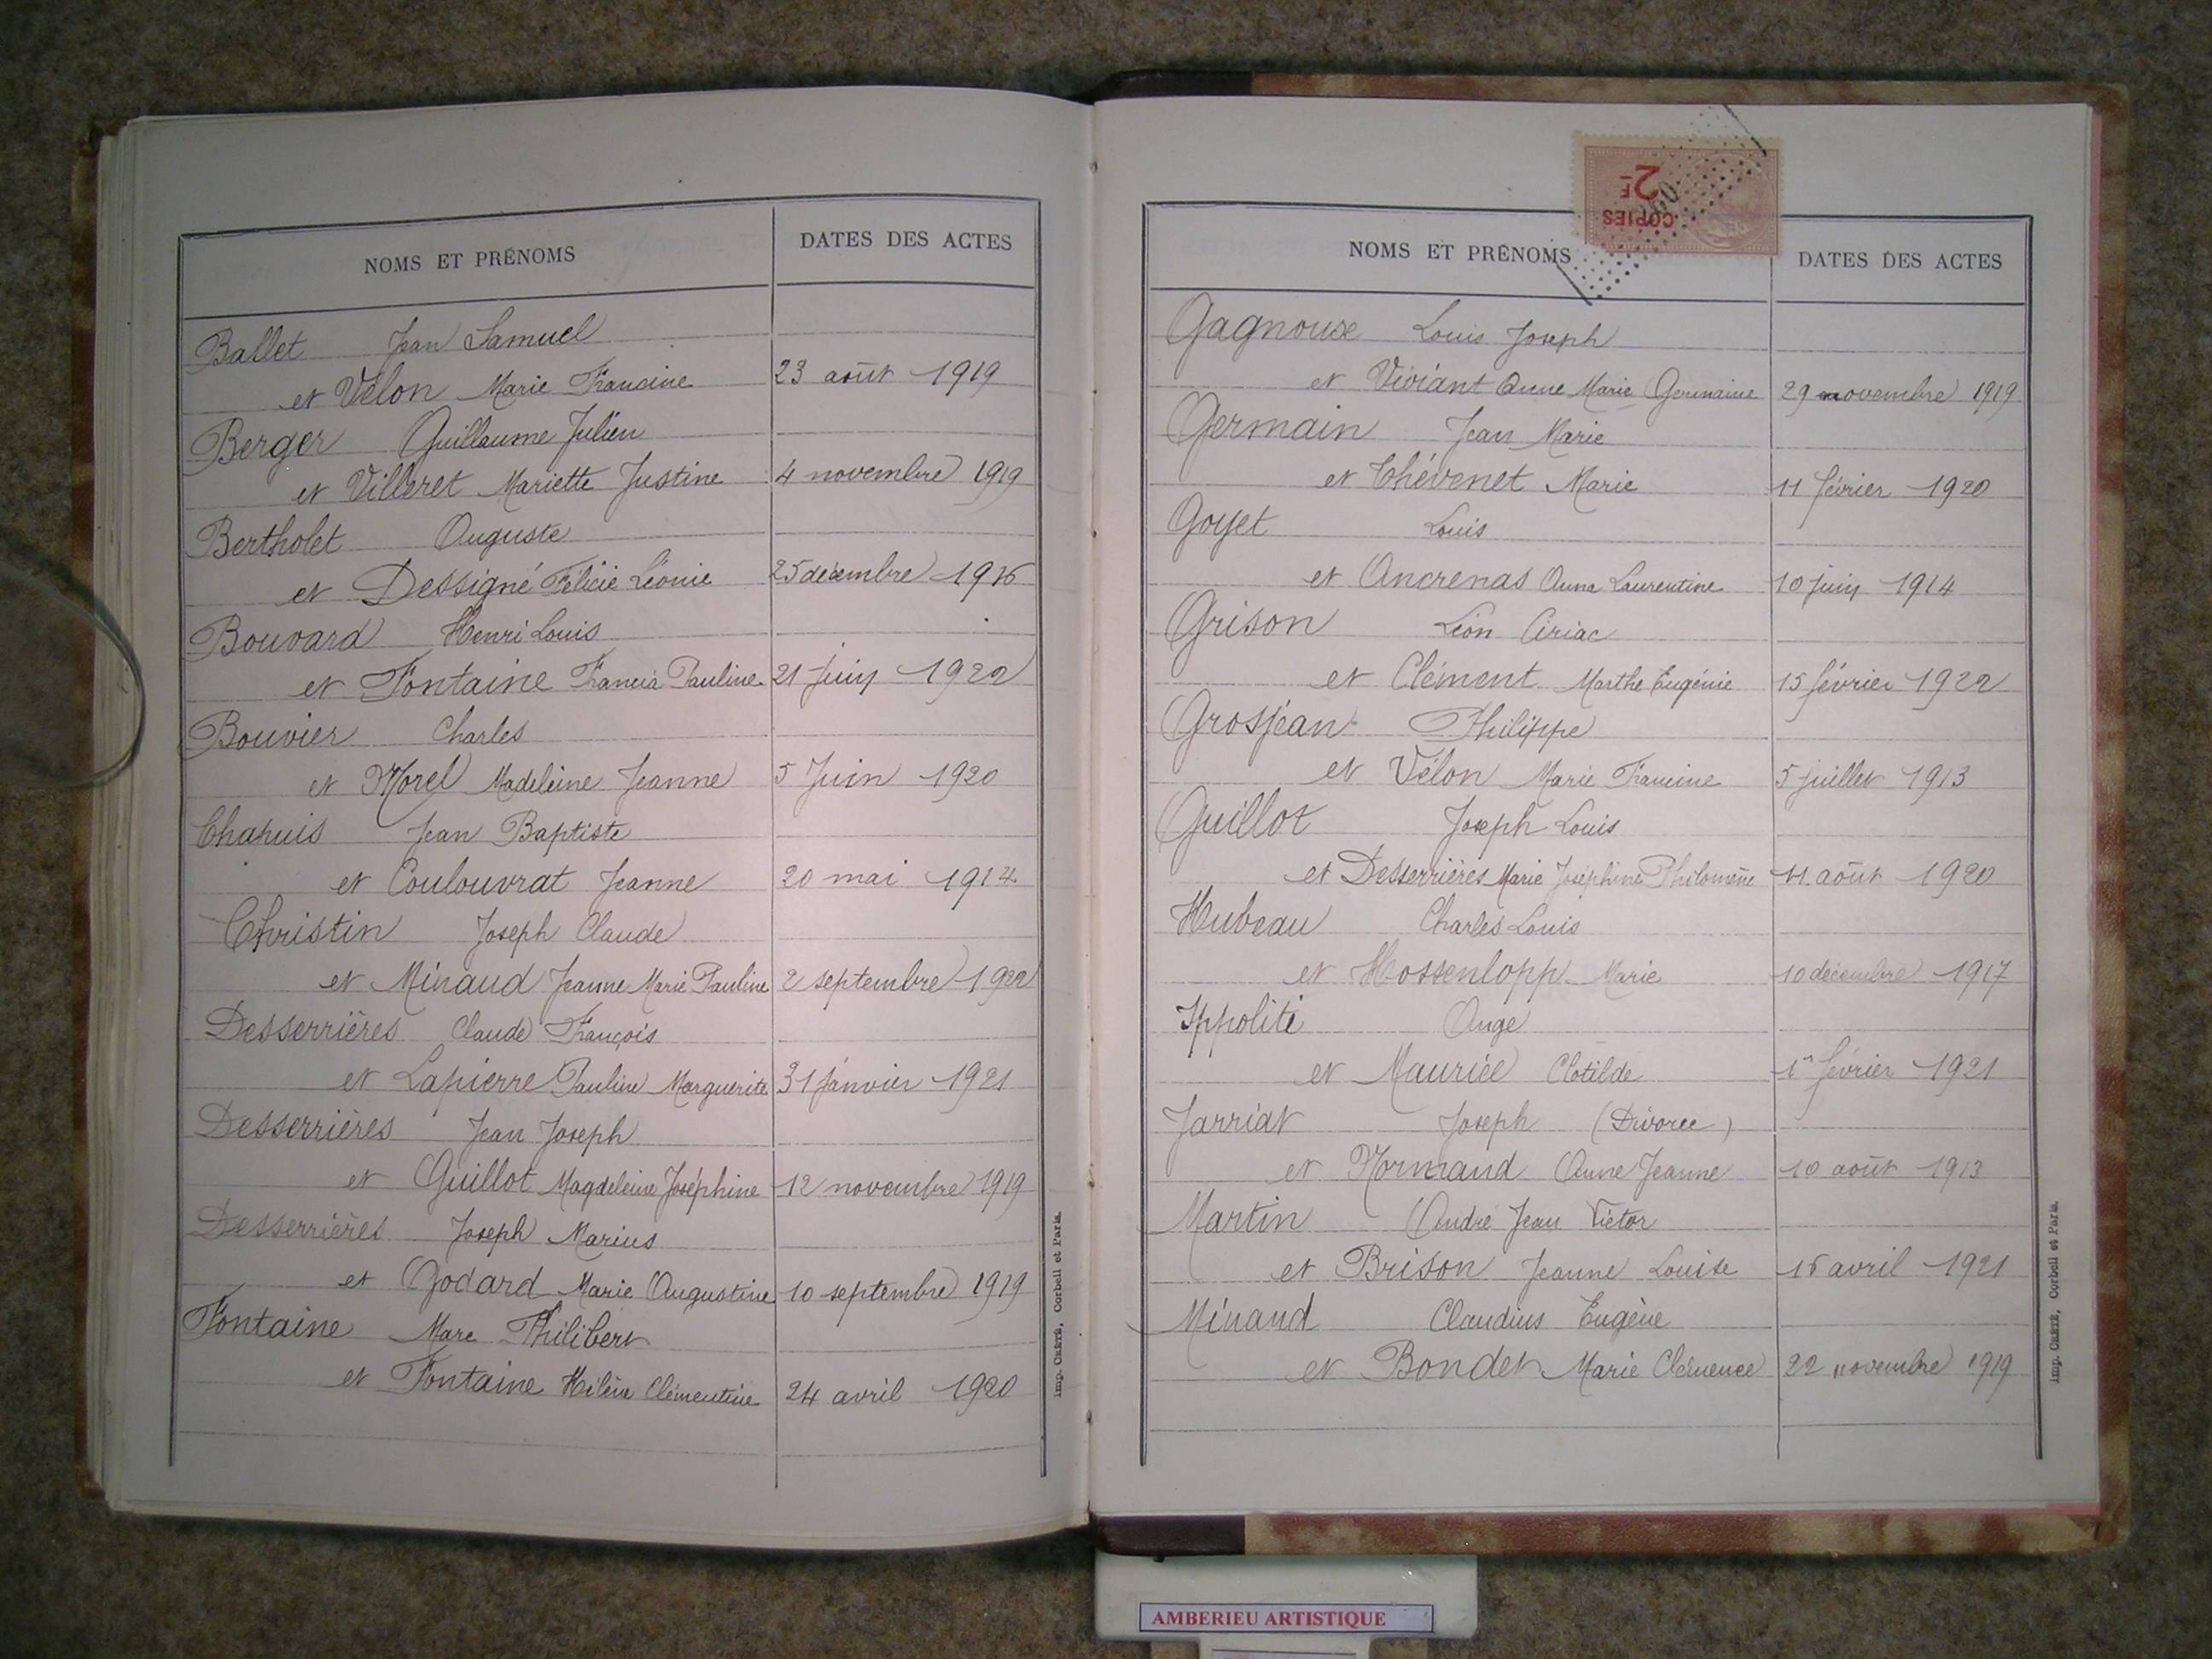 NOMS ET PRÉNOMS DATES DES ACTES
Ballet Jean Samuel
et Vélon Marie Francine 23 août 1919
Berger Guillaume Julien
et Villeret Mariette Justine 4 novembre 1919
Bertholet Auguste
et Dessigné Félicie Léonie 25 décembre 1916
Bouvard Henri Louis
et Fontaine Francia Pauline 21 juin 1922
Bouvier Charles
et Morel Madeleine Jeanne 5 Juin 1920
Chapuis Jean Baptiste
et Coulouvrat Jeanne 20 mai 1914
Christin Joseph Claude
et Minaud Jeanne Marie Pauline 2 septembre 1922
Desserrières Claude François
et Lapierre Pauline Marguerite 31 janvier 1921
Desserrières Jean Joseph
et Guillot Magdeleine Joséphine 12 novembre 1919
Desserrières Joseph Marius
et Godard Marie Augustine 10 septembre 1919
Fontaine Marc Philibert
et Fontaine Hélène Clémentine 24 avril 1920
Imp. CRÉTÉ, Corbeil et Paris.
COPIES
2F
NOMS ET PRÉNOMS DATES DES ACTES
Gagnoux Louis Joseph
et Viviant Anne Marie Germaine 29 novembre 1919
Germain Jean Marie
et Chévenet Marie 11 février 1920
Goyet Louis
et Ancrenas Anna Laurentine 10 juin 1914
Grison Léon Ciriac
et Clément Marthe Eugénie 15 février 1922
Grosjean Philippe
et Vélon Marie Francine 5 juillet 1913
Guillot Joseph Louis
et Desserrières Marie Joséphine Philomène 11 août 1920
Hubeau Charles Louis
et Hossenlopp Marie 10 décembre 1917
Ippoliti Ange
et Mauriée Clotilde 1er février 1921
Jarriat Joseph (Divorce)
et Normand Anne Jeanne 10 août 1913
Martin André Jean Victor
et Brison Jeanne Louise avril 1921
Minaud Claudius Eugène
et Bondet Marie Clémence 22 novembre 1919
Imp. CRÉTÉ, Corbeil et Paris.
AMBERIEU ARTISTIQUE